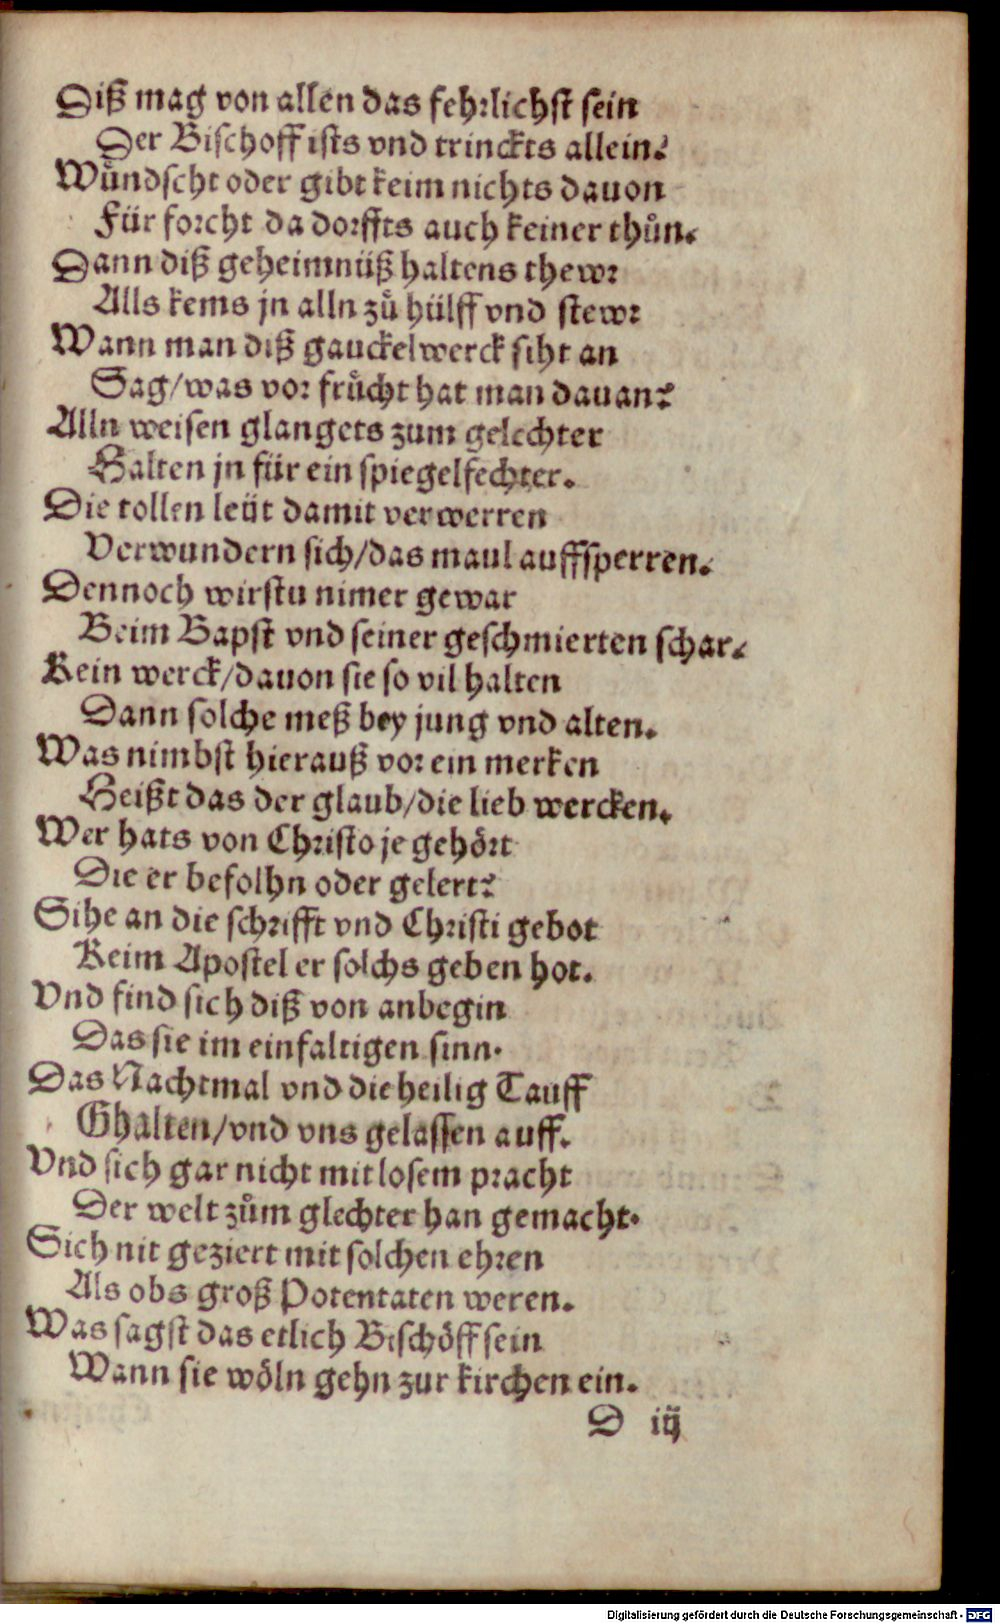 Diß mag von allen das fehrlichst sein
Der Bischoff ists vnd trinckts allein.
Wůndscht oder gibt keim nichts dauon
Für forcht da dorffts auch keiner thůn.
Dann diß geheimnüß haltens thewr
Alls kems jn alln zů hülff vnd stewr
Wann man diß gauckelwerck siht an
Sag/was vor frůcht hat man dauan?
Alln weisen glangets zum gelechter
Halten jn für ein spiegelfechter.
Die tollen leüt damit verwerren
Verwundern sich/das maul auffsperren.
Dennoch wirstu nimer gewar
Beim Bapst vnd seiner geschmierten schar.
Kein werck/dauon sie so vil halten
Dann solche meß bey jung vnd alten.
Was nimbst hierauß vor ein merken
Heißt das der glaub/die lieb wercken.
Wer hats von Christo je gehört
Die er befolhn oder gelert?
Sihe an die schrifft vnd Christi gebot
Keim Apostel er solchs geben hot.
Vnd find sich diß von anbegin
Das sie im einfaltigen sinn.
Das Nachtmal vnd die heilig Tauff
Ghalten/vnd vns gelassen auff.
Vnd sich gar nicht mit losem pracht
Der welt zům glechter han gemacht.
Sich nit geziert mit solchen ehren
Als obs groß Potentaten weren.
Was sagst das etlich Bischöff sein
Wann sie wöln gehn zur kirchen ein.
D iij
Digitalisierung gefördert durch die Deutsche Forschungsgemeinschaft - DFG